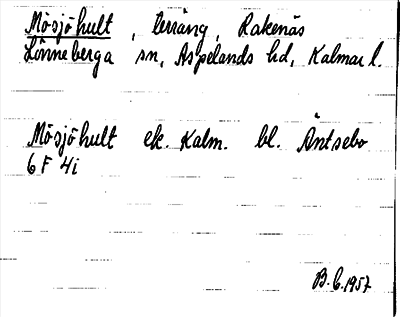 Mösjöhult, terräng, Rakenäs
Lönneberga sn, Aspelands hd, Kalmar l.
Mösjöhult ek. Kalm. bl. Äntsebo
6 F 4i
B.C.1957